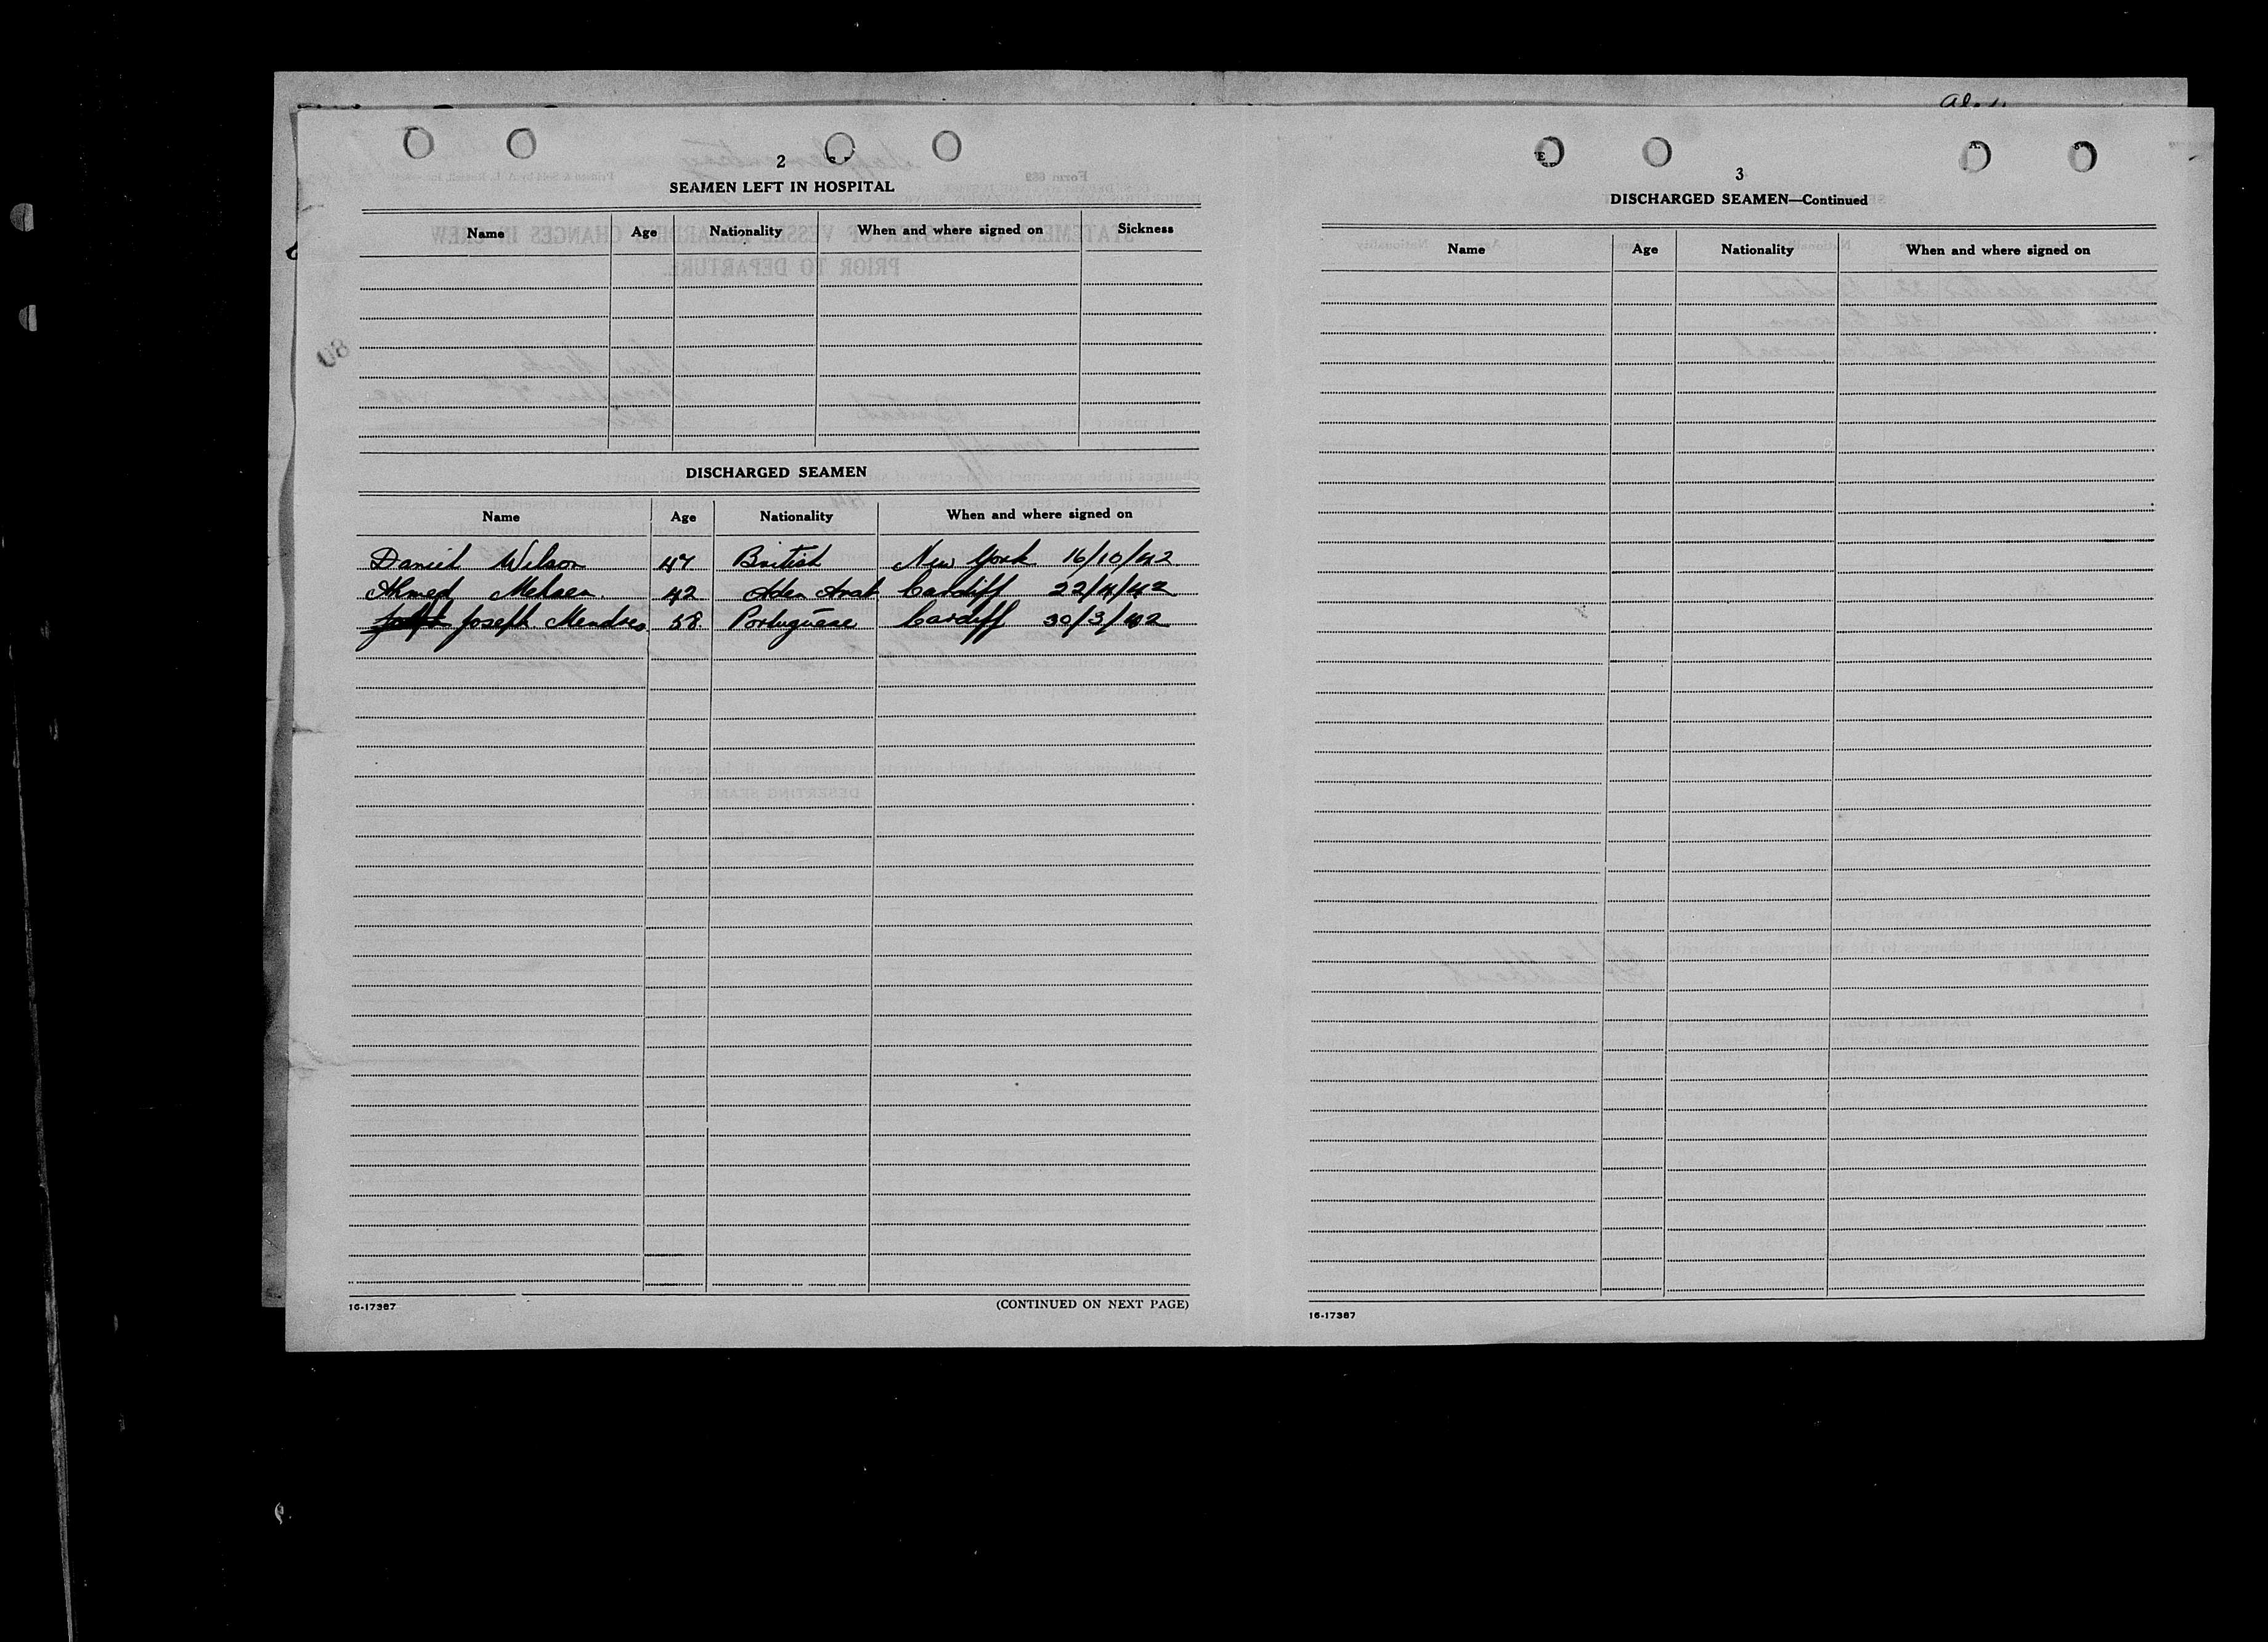 2
SEAMEN LEFT IN HOSPITAL
Name Age Nationality When and where signed on Sickness
DISCHARGED SEAMEN
Name Age Nationality When and where signed on
Daniel Wilson 47 British New York 16/10/42
Ahmed Mehsen 42 Aden Arab Cardiff 22/4/42
Joseph Mendres 58 Portuguese Cardiff 30/3/42
16-17387
(CONTINUED ON NEXT PAGE)
3
DISCHARGED SEAMEN—Continued
Name Age Nationality When and where signed on
16-17387